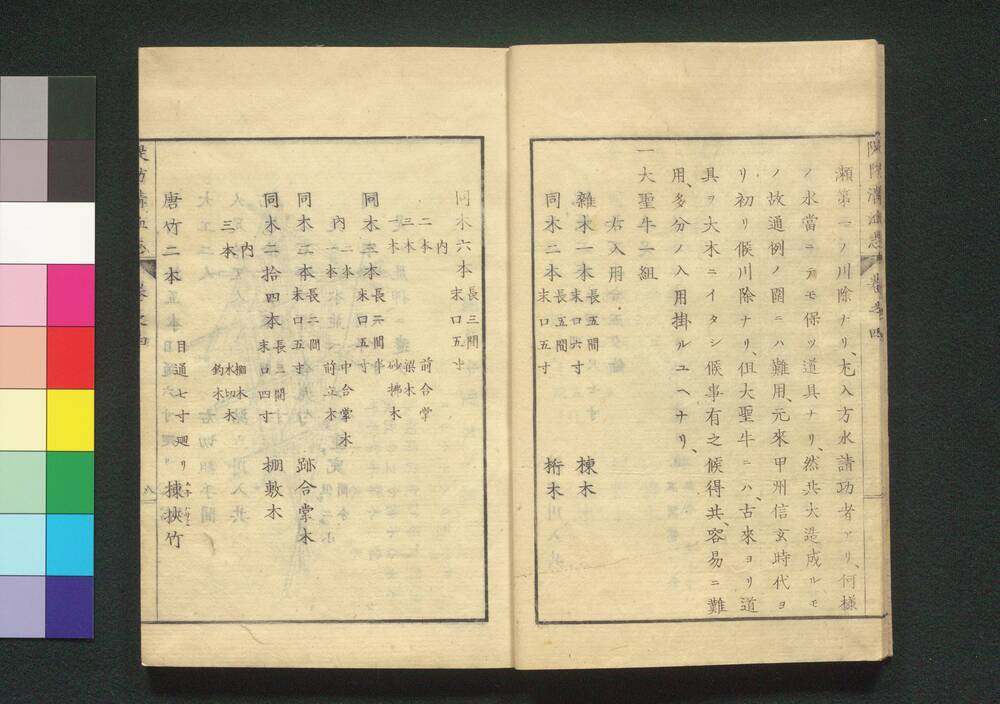 瀬第一ノ川除ナリ、尤入方水請功者アリ、何様
ノ水當ニテモ保ツ道具ナリ、然共大造成ルモ
ノ故通例ノ圍ニハ難用、元來甲州信玄時代ヨ
リ初リ候川除ナリ、但大聖牛ニハ、古來ヨリ道
具ヲ大木ニイタシ候事有之候得共、容易ニ難
用、多分ノ入用掛ルユヘナリ、
一大聖牛一組
右入用
雜木一本 長五間 末口六寸 棟木
同木二本 長五間 末口五寸 桁木
同木六本 長三間 末口五寸
内
二本 前合掌
三本 梁木
一本 砂拂木
同木三本 長二間半 末口五寸
内 二本 中合掌木
一本 前立木
同木二本 長二間 末口五寸 跡合掌木
同木二拾四本 長三間 末口四寸 棚敷木
内
三本
棚木
水切木
釣木
唐竹二本 目通七寸廻リ 棟挾竹
八